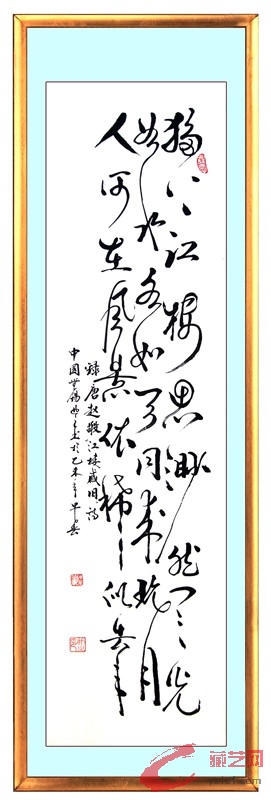 独上江楼思渺然月光
如水水如天同来玩月
人何在风景依稀似去年
录唐赵嘏江楼感旧诗
中国 于乙未年早春
藏艺网